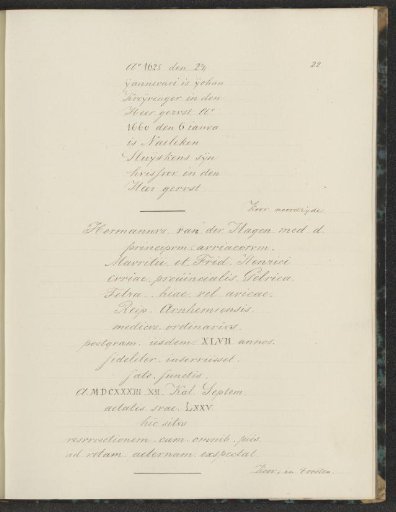 Aº 1625 den 24
22
yannevari is yohan
Kreyvenger in den
Heer gervst Aº
1660 den 6 ianva
is Naeleken
Huyskens syn
hvisfrov in den
Heer gervst
Koor noordzyde
Hermannvs van der Hagen med d.
princepvm avriacorvm
Mavritii et Fred. Henrici
cvriae provincialis Gelrica
Fstra. hiac vel aricae
Reip Arnhemiensis
medicvs ordinarivs
postqvam iisdem XLVII annos
fideliter inservisset
fato fvnctis
A. MDCXXXIII XII Kal. Septem
aetatis svae LXXV
hic sitvs
resvrrectionem cvm omnib. piis
ad vitam aeternam exspectat
Koor, en t'oosten